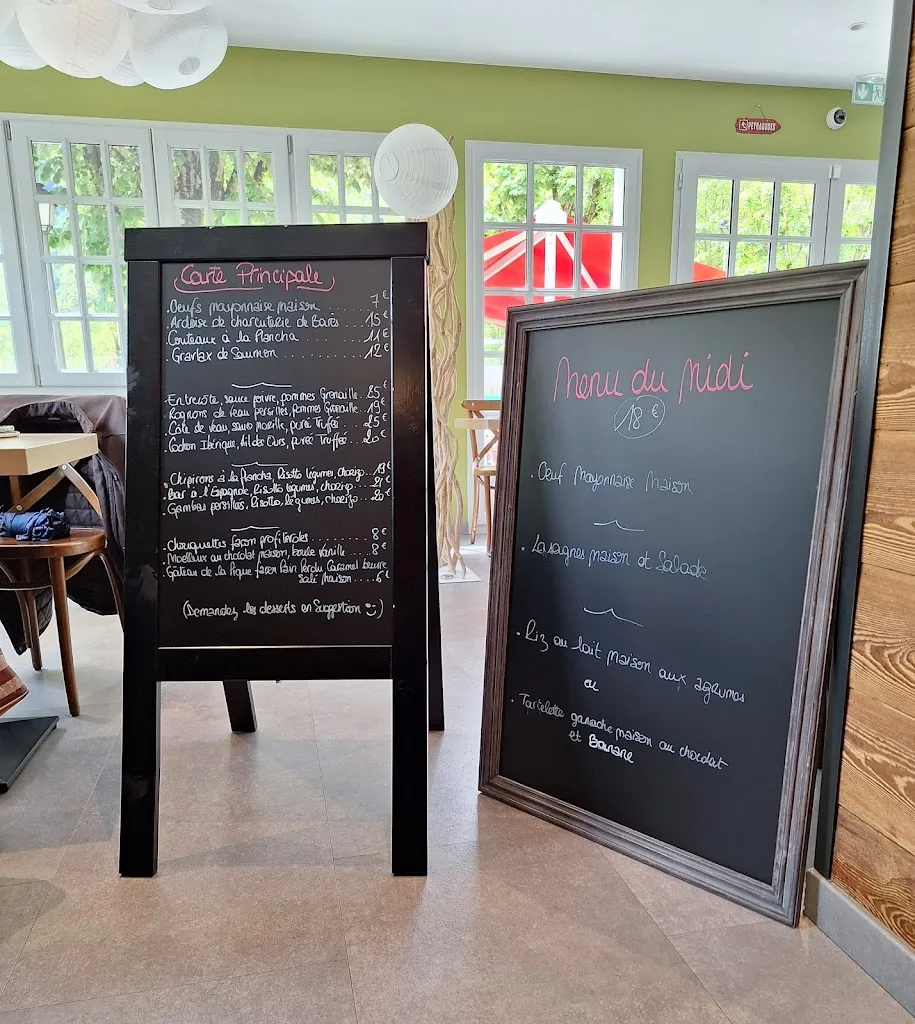 Carte Principale
Oeufs mayonnaise maison ..... 7€
. Ardoise de charcuterie de Bares .... 15€
. Couteaux à la Plancha ..... 11€
. Gravlax de Saumon ........ 12€
. Entrecôte, sauce poivre, pommes Grenaille.. 25€
. Rognons de veau persillés, Pommes Grenaille.. 19€
. Côte de veau, sauce morille, purée Truffée ...25€
. Cochon Ibérique, Ail des Ours, purée Truffée ... 20€
. Chipirons à la plancha, Risotto légumes, chorizo... 19€
. Bar à l'Espagnole, Risotto légumes, chorizo....
. Gambas persillées, Risotto, légumes, chorizo ... 20€
. Chouquettes façon profiteroles ........ 8€
. Moelleux au chocolat maison, boule Vanille .... 8€
. Gâteau de la Pique façon Pain Perdu Caramel beurre
salé maison .....6€
(Demandez les desserts en Suggestion)
Menu du Midi
18€
. Oeuf Mayonnaise Maison
. Lasagnes maison et Salade
. Riz au lait Maison aux agrumes
ou
. Tartelette ganache maison au chocolat
et Banane
PEYRAGUDES